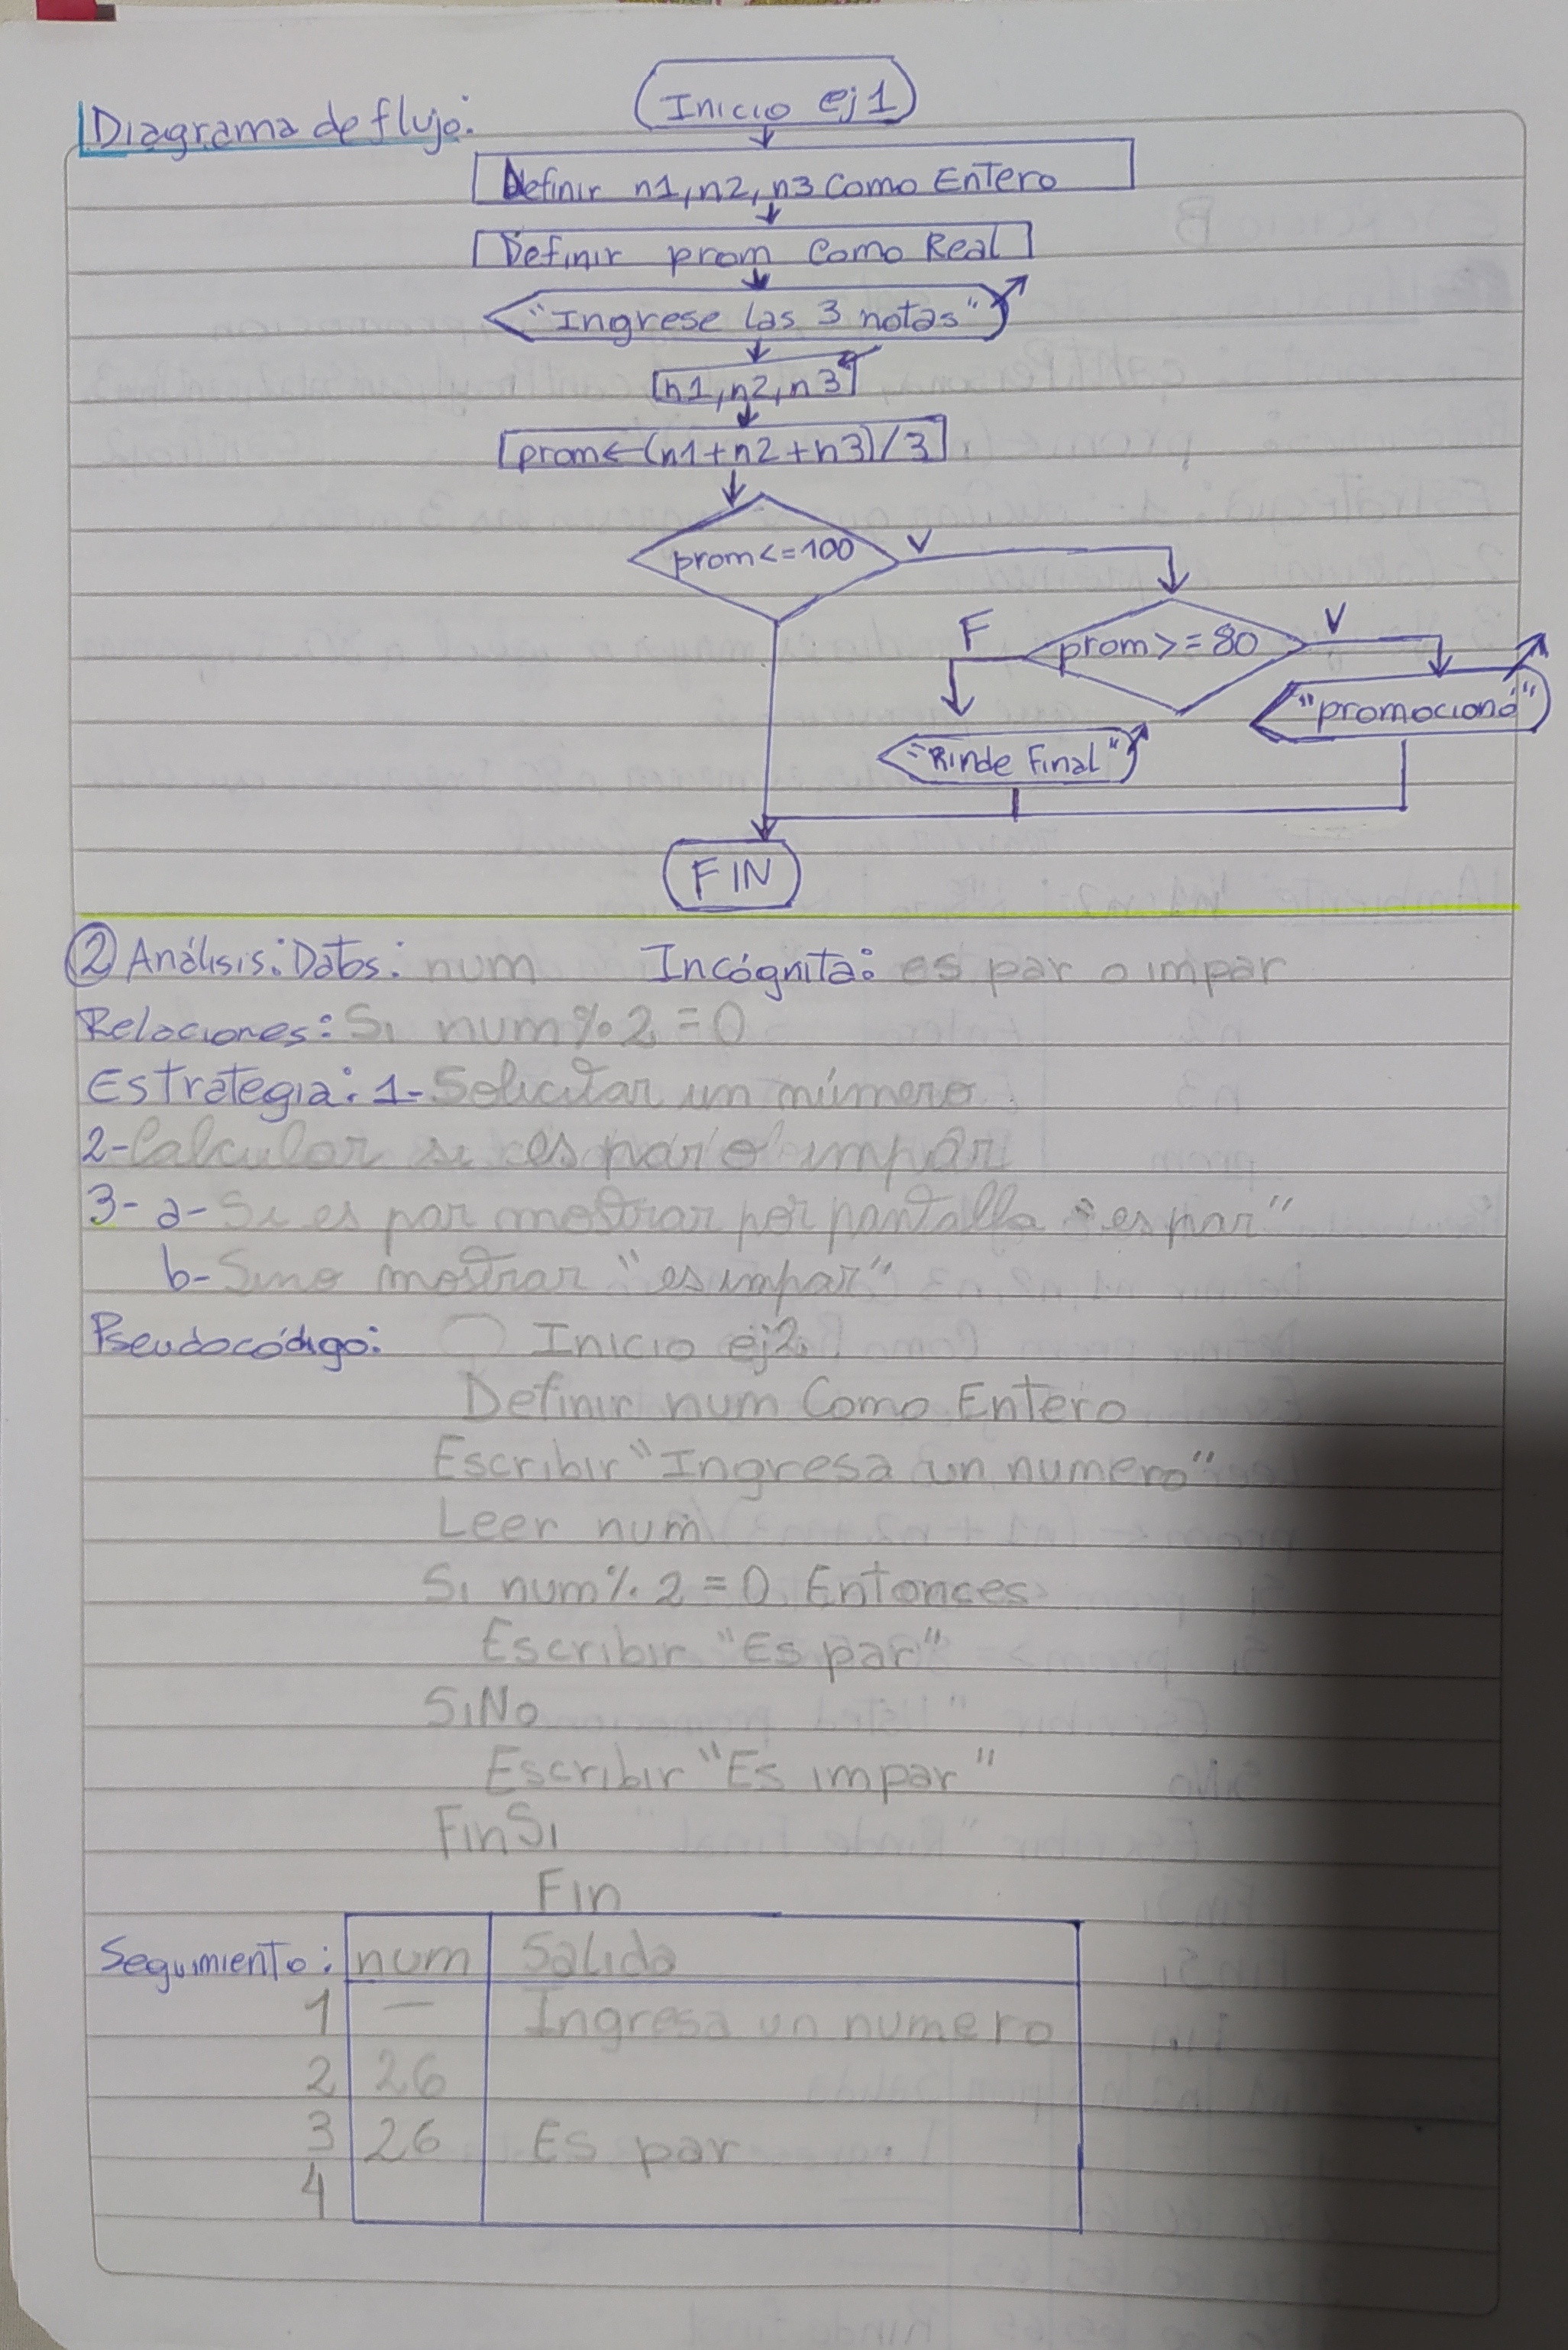 Diagrama de flujo:
Inicio ej1
Definir n1, n2, n3 Como Entero
Definir prom Como Real
"Ingrese las 3 notas"
n1, n2, n3
prom←(n1+n2+n3)/3
prom<=100
V
prom>=80
F
V
"promocionó"
"Rinde Final"
FIN
② Análisis: Datos: num Incógnita: es par o impar
Relaciones: Si num%2=0
Estrategia: 1- Solicitar un número
2- Calcular si es par o impar
3- a- Si es par mostrar por pantalla "es par"
b- Sino mostrar "es impar"
Pseudocódigo: Inicio ej2
Definir num Como Entero
Escribir "Ingresa un numero"
Leer num
Si num%2=0 Entonces
Escribir "Es par"
SiNo
Escribir "Es impar"
FinSi
Fin
Seguimiento: num Salida
1 — Ingresa un numero
2 26
3 26 Es par
4